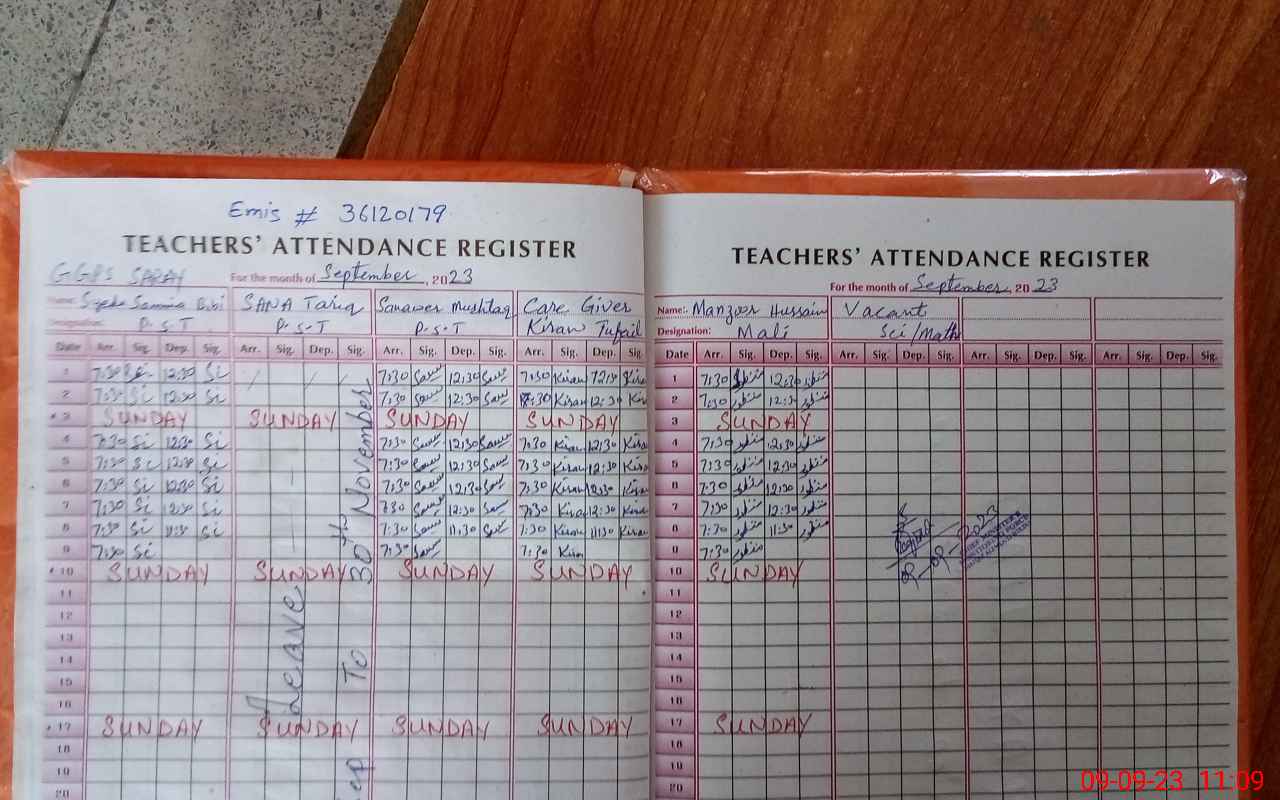 Emis # 36120179
TEACHERS' ATTENDANCE REGISTER
GGPS SARAY For the month of September, 2023
Name: Syeda Samina Bibi SANA Tariq Sanawer Mushtaq Care Giver
Designation: P.S.T P.S.T P.S.T Kiran Tufail
Date Arr. Sig. Dep. Sig. Arr. Sig. Dep. Sig. Arr. Sig. Dep. Sig. Arr. Sig. Dep. Sig.
1 7:30 Si 12:30 Si 7:30 12:30 7:30 Kiran 12:30 Kiran
2 7:30 Si 12:30 Si 7:30 12:30 7:30 Kiran 12:30 Kiran
3 SUNDAY SUNDAY SUNDAY SUNDAY
4 7:30 Si 12:30 Si 7:30 12:30 7:30 Kiran 12:30 Kiran
5 7:30 Si 12:30 Si 7:30 12:30 7:30 Kiran 12:30 Kiran
6 7:30 Si 12:30 Si 7:30 12:30 7:30 Kiran 12:30 Kiran
7 7:30 Si 12:30 Si 7:30 12:30 7:30 Kiran 12:30 Kiran
8 7:30 Si 11:30 Si 7:30 11:30 7:30 Kiran 11:30 Kiran
9 7:30 Si 7:30 7:30 Kiran
10 SUNDAY SUNDAY SUNDAY SUNDAY
11
12
13
14
15
16
17 SUNDAY SUNDAY SUNDAY SUNDAY
18
19
20
Leave
To 30th November
TEACHERS' ATTENDANCE REGISTER
For the month of September, 2023
Name:. Manzoor Hussain Vacant
Designation: Mali Sci/Math
Date Arr. Sig. Dep. Sig. Arr. Sig. Dep. Sig. Arr. Sig. Dep. Sig. Arr. Sig. Dep. Sig.
1 7:30 منظور 12:30 منظور
2 7:30 منظور 12:30 منظور
3 SUNDAY
4 7:30 منظور 12:30 منظور
5 7:30 منظور 12:30 منظور
6 7:30 منظور 12:30 منظور
7 7:30 منظور 12:30 منظور
8 7:30 منظور 11:30 منظور
9 7:30 منظور
10 SUNDAY
11
12
13
14
15
16
17 SUNDAY
18
19
20
09-09-2023
09-09-23 11:09